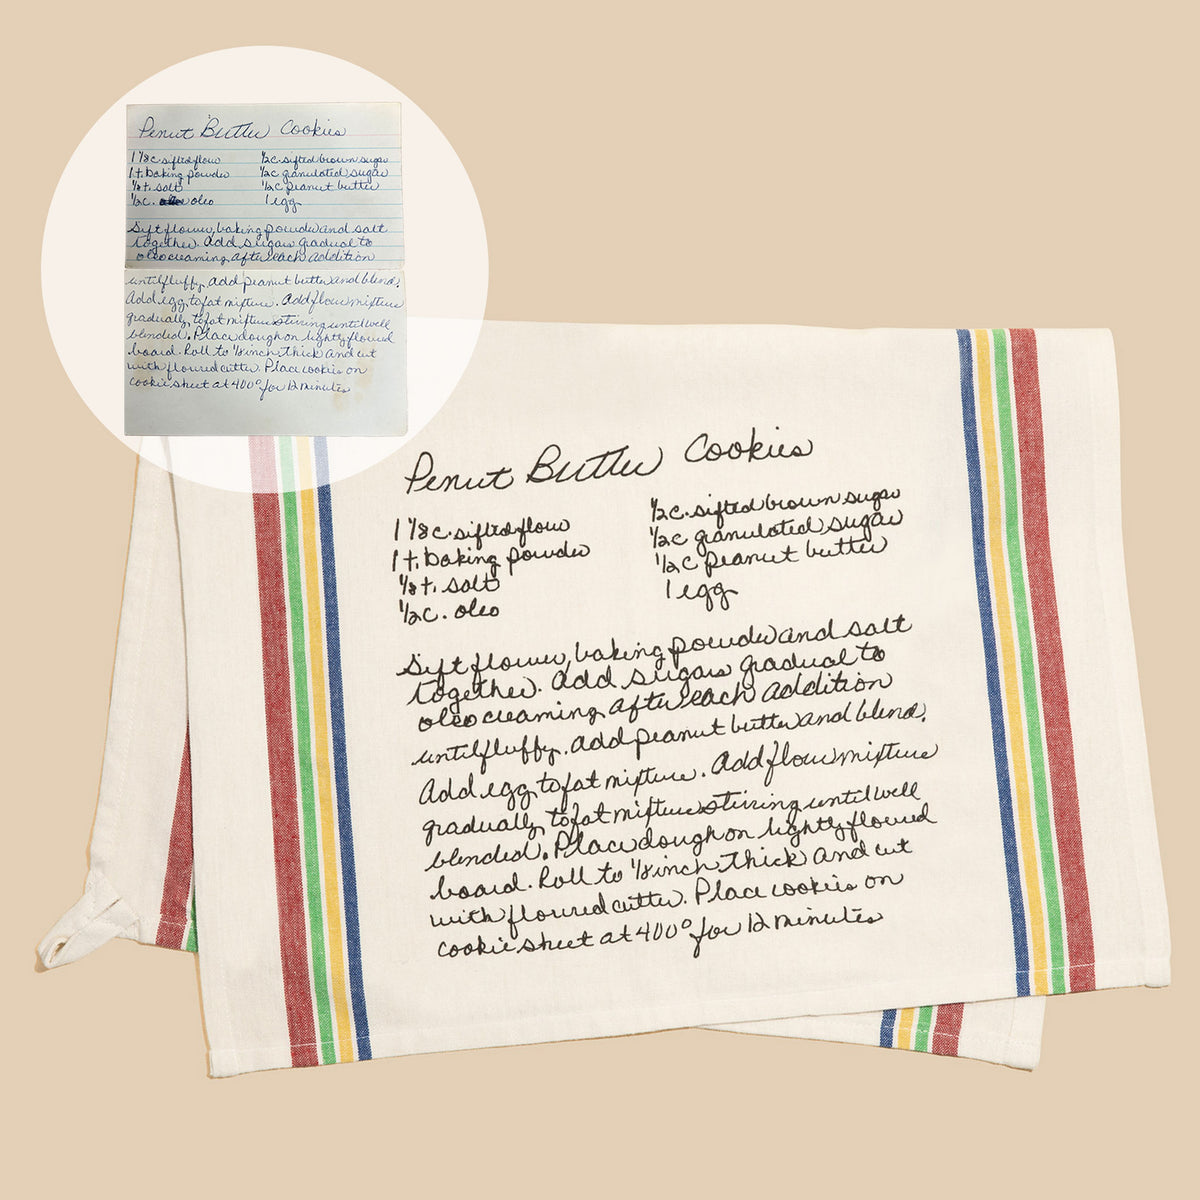 Penut Butter Cookies
1 1/8 c. sifted flour
1/2 c. sifted brown sugar
1 t. baking powder
1/2 c granulated sugar
1/8 t. salt
1/2 c peanut butter
1/2 c. oleo
1 egg
Sift flower, baking powder and salt
together. Add sugars gradual to
oleo creaming after each addition
until fluffy. Add peanut butter and blend.
Add egg to fat mixture. Add flour mixture
gradually to fat mixture stirring until well
blended. Place dough on lightly floured
board. Roll to 1/8 inch thick and cut
with floured cutter. Place cookies on
cookie sheet at 400° for 12 minutes
Penut Butter Cookies
1 1/8 c. sifted flour
1/2 c. sifted brown sugar
1 t. baking powder
1/2 c granulated sugar
1/8 t. salt
1/2 c peanut butter
1/2 c. oleo
1 egg
Sift flower, baking powder and salt
together. Add sugars gradual to
oleo creaming after each addition
until fluffy. Add peanut butter and blend.
Add egg to fat mixture. Add flour mixture
gradually to fat mixture stirring until well
blended. Place dough on lightly floured
board. Roll to 1/8 inch thick and cut
with floured cutter. Place cookies on
cookie sheet at 400° for 12 minutes